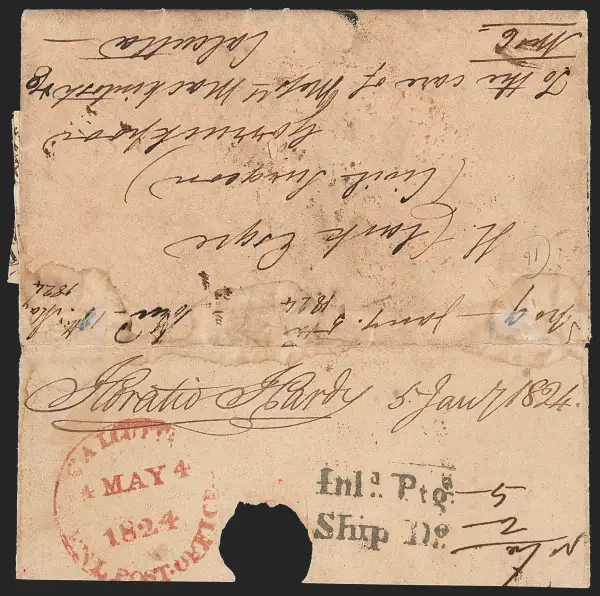 H. Clark Esqre
(Civil Surgeon)
Gorruckpoor
To the care of Messrs Mackintosh & Co
Calcutta
No 6
16
Jany. 5th
1824
May
1824
Horatio Hardy 5 Jany 1824.
CALCUTTA
4 MAY 4
1824
GENL. POST-OFFICE
Inl.d Ptg.e
Ship Do.
5
2